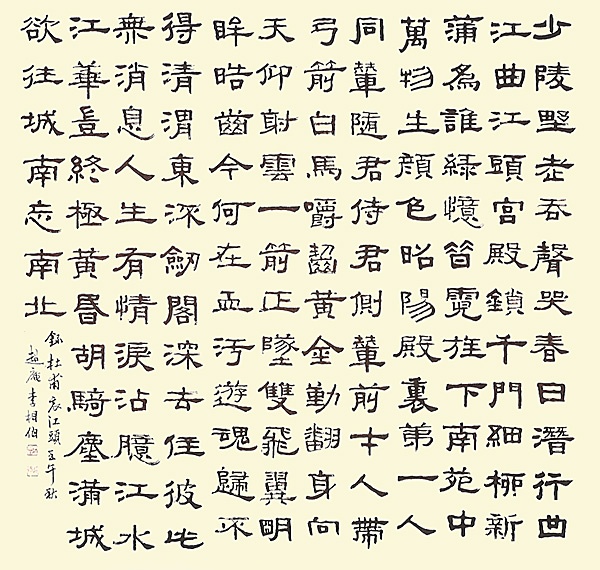 少陵野老吞聲哭春日潛行曲
江曲江頭宮殿鎖千門細柳新
蒲為誰綠憶昔霓旌下南苑中
萬物生顏色昭陽殿裏第一人
同輦隨君侍君側輦前才人帶
弓箭白馬嚼齧黃金勒翻身向
天仰射雲一箭正墜雙飛翼明
眸晧齒今何在血汚遊魂歸不
得清渭東流劍閣深去住彼此
無消息人生有情淚沾臆江水
江華豈終極黃昏胡騎塵滿城
欲往城南忘南北
錄杜甫哀江頭壬午秋
庵李相伯